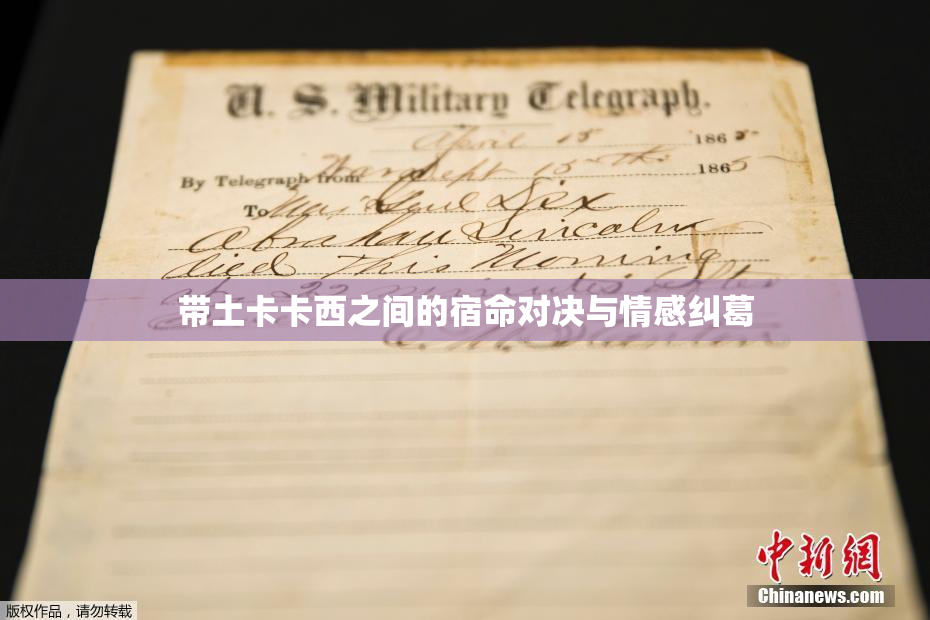 U. S. Military Telegraph.
April 15 1865
By Telegraph from War Dept 15th 1865
To Maj Genl Dix
Abraham Lincoln
died This Morning
at 22 minutes after
带土卡卡西之间的宿命对决与情感纠葛
E. M. Stanton
中新网
Chinanews.com
版权作品,请勿转载